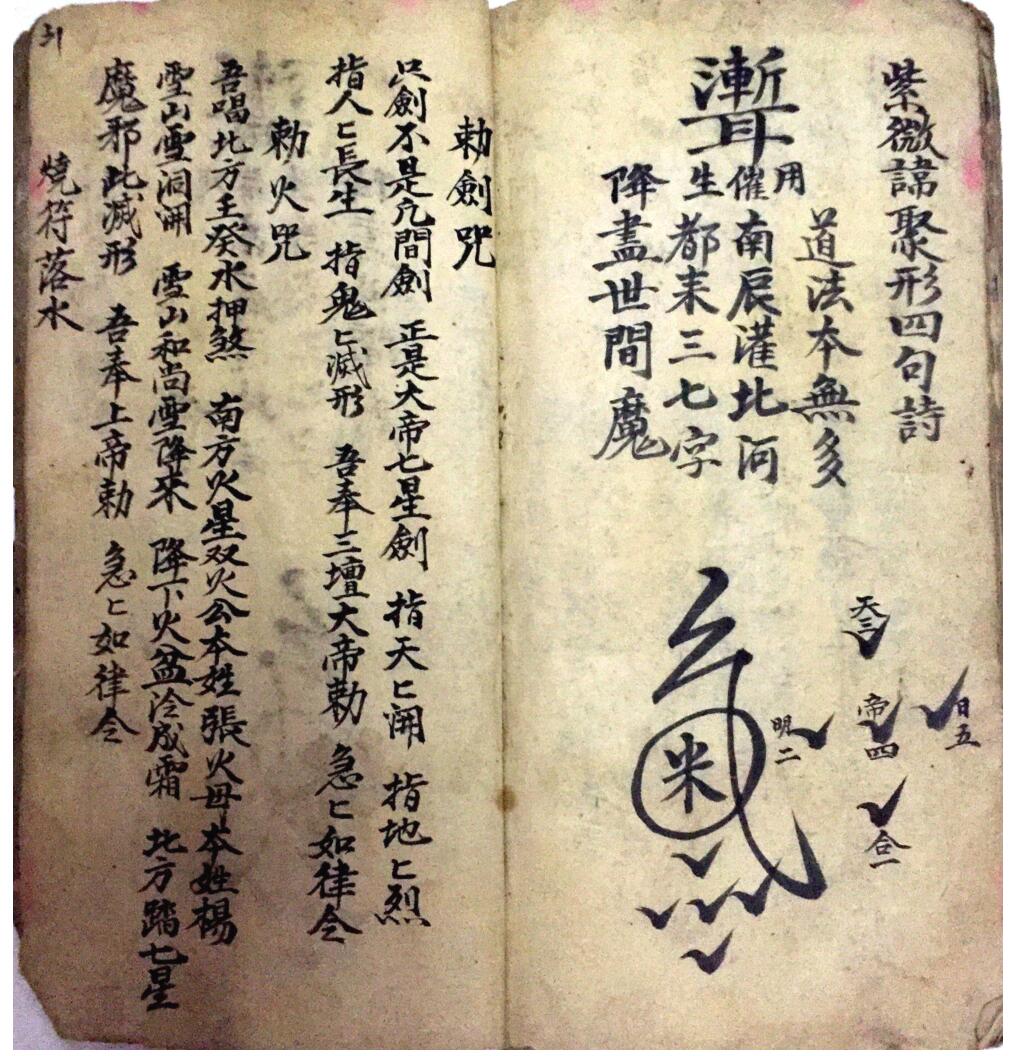 紫微諱聚形四句詩
道法本無多
用
催南辰灌北河
生都来三七字
降盡世間魔
天三
日五
帝四
明二
合一
米
勅劍咒
只劍不是凡間劍　正是大帝七星劍　指天匕開　指地匕烈
指人匕長生　指鬼匕滅形　吾奉三壇大帝勅　急匕如律令
勅火咒
吾唱北方壬癸水押煞　南方火星双火公本姓張火母本姓楊
雪山雪洞開　雪山和尚雪降來　降下火盆冷成霜　北方踏七星
魔邪此滅形　吾奉上帝勅　急匕如律令
燒符落水